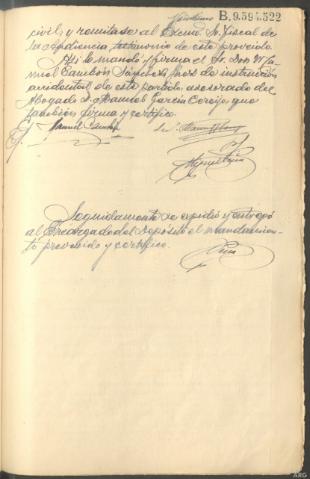 B.9.594.522
civil, y remítase al Excmo. Sr. Fiscal de
la Audiencia, testimonio de este proveído.
Así lo mandó y firma el Sr. Don Ma
nuel Sánchez, Juez de instrucción
accidental de este partido asesorado del
Abogado D. Manuel García que
también firma y certifico.
Manuel
Seguidamente se expidió y entregó
al Encargado del Depósito el mandamien
to proveído y certifico.
ARG